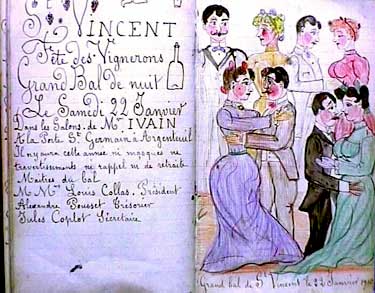 St VINCENT
Fête des Vignerons
Grand Bal de nuit
Le Samedi 22 Janvier
Dans les Salons de Mr IVAIN
A la Porte St Germain à Argenteuil
Il n'y aura cette année ni masques ni
travertissements ni rappel ni de retraite
Maitres du bal
M Mrs Louis Collas, Président
Alexandre Pousset Trésorier
Jules Coplot Sécretaire
Grand bal de St Vincent le 22 Janvier